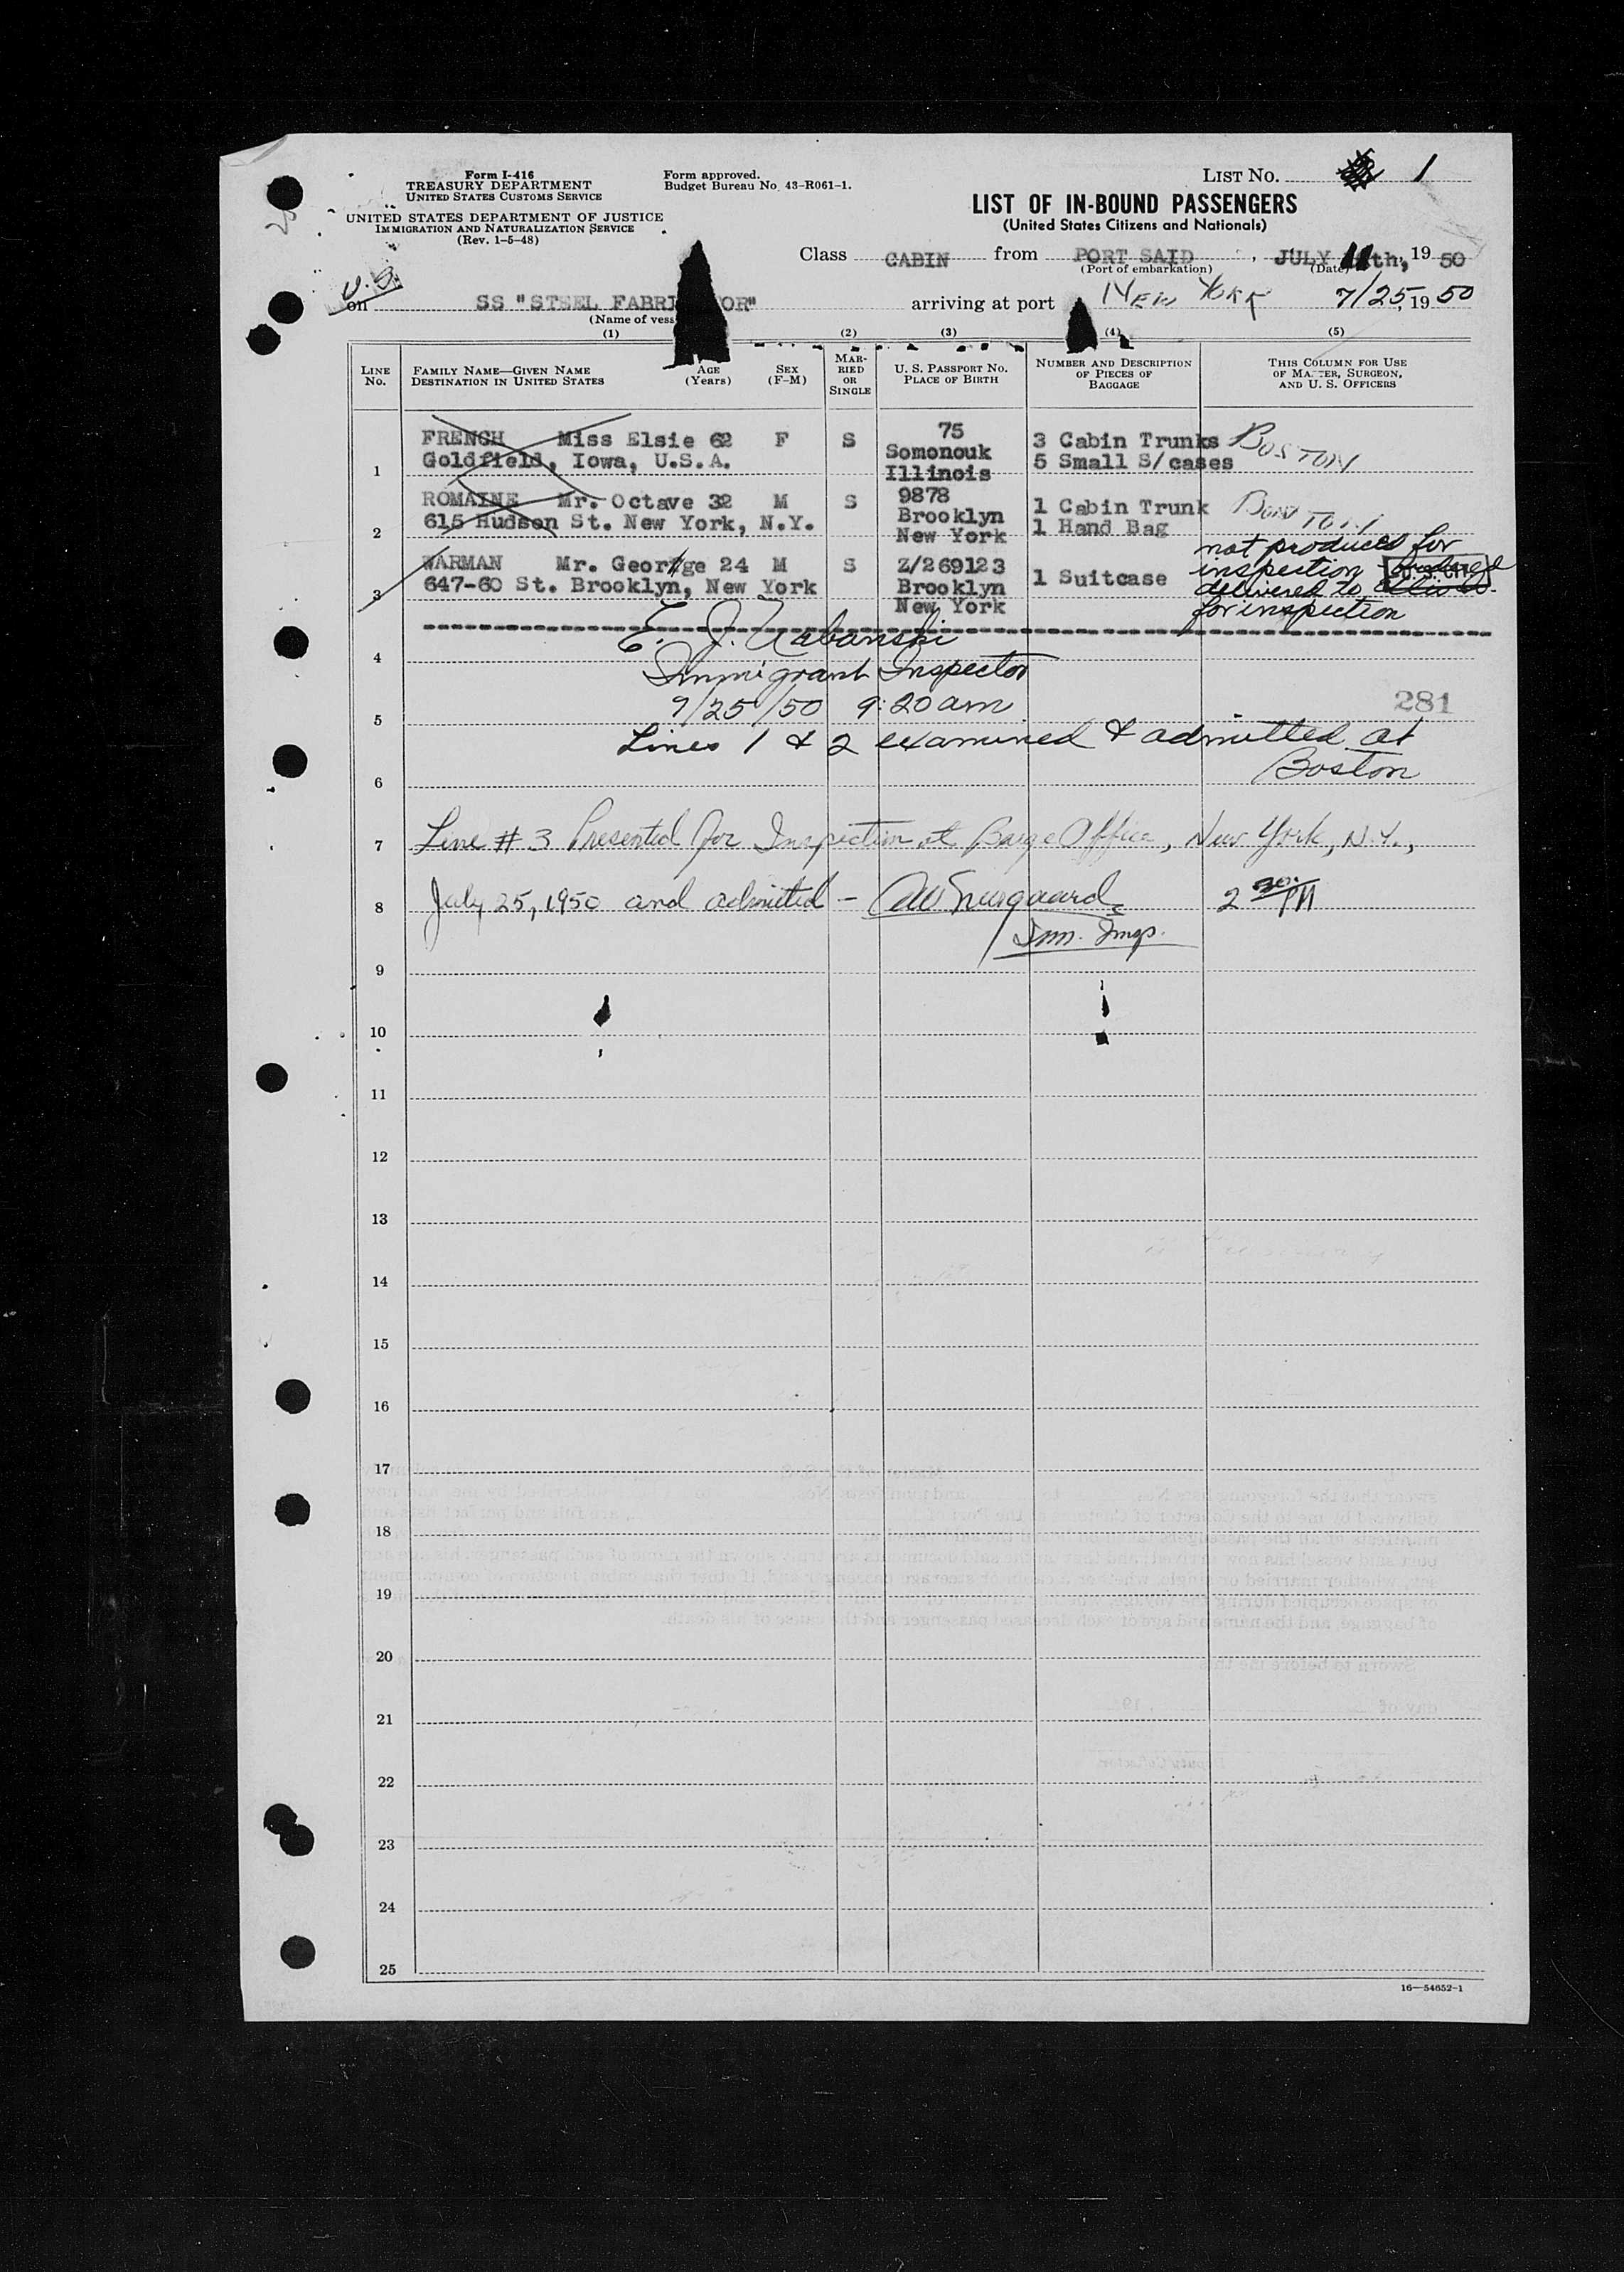 Form I-416
TREASURY DEPARTMENT
UNITED STATES CUSTOMS SERVICE
UNITED STATES DEPARTMENT OF JUSTICE
IMMIGRATION AND NATURALIZATION SERVICE
(Rev. 1-5-48)
Form approved.
Budget Bureau No. 43-R061-1.
LIST NO. 1
LIST OF IN-BOUND PASSENGERS
(United States Citizens and Nationals)
Class CABIN from PORT SAID, JULY 11th, 19 50
(Port of embarkation) (Date)
on SS "STEEL FABRI OR" arriving at port New York 7/25, 19 50
(Name of vess
(1) (2) (3) (4) (5)
LINE No.
FAMILY NAME—GIVEN NAME
DESTINATION IN UNITED STATES
AGE
(Years)
SEX
(F-M)
MAR-
RIED
OR
SINGLE
U. S. PASSPORT NO.
PLACE OF BIRTH
NUMBER AND DESCRIPTION
OF PIECES OF
BAGGAGE
THIS COLUMN FOR USE
OF MA TER, SURGEON,
AND U. S. OFFICERS
1 FRENCH Miss Elsie 62 F S 75 3 Cabin Trunks BOSTON
Goldfield, Iowa, U.S.A. Somonouk 5 Small S/cases
Illinois
2 ROMAINE Mr. Octave 32 M S 9878 1 Cabin Trunk BOSTON
615 Hudson St. New York, N.Y. Brooklyn 1 Hand Bag
New York
3 WARMAN Mr. George 24 M S Z/269123 1 Suitcase
647-60 St. Brooklyn, New York Brooklyn
New York
not produced for
inspection
delivered to
for inspection
E. J.
Immigrant Inspector
7/25/50 9:20 am
281
Lines 1 & 2 examined & admitted at
Boston
Line # 3 Presented for Inspection at Barge Office, New York, N.Y.,
July 25, 1950 and admitted - 2 30 PM
Imm. Insp.
4
5
6
7
8
9
10
11
12
13
14
15
16
17
18
19
20
21
22
23
24
25
16—54652-1